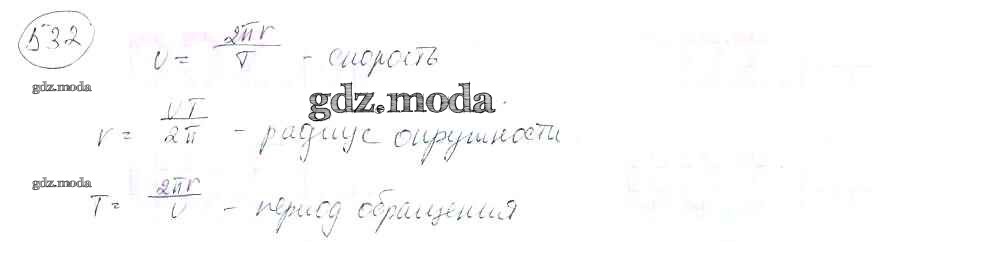 532
υ = 2πr/T - скорость
gdz.moda
gdz.moda
r = υT/2π - радиус окружности
gdz.moda
T = 2πr/υ - период обращения